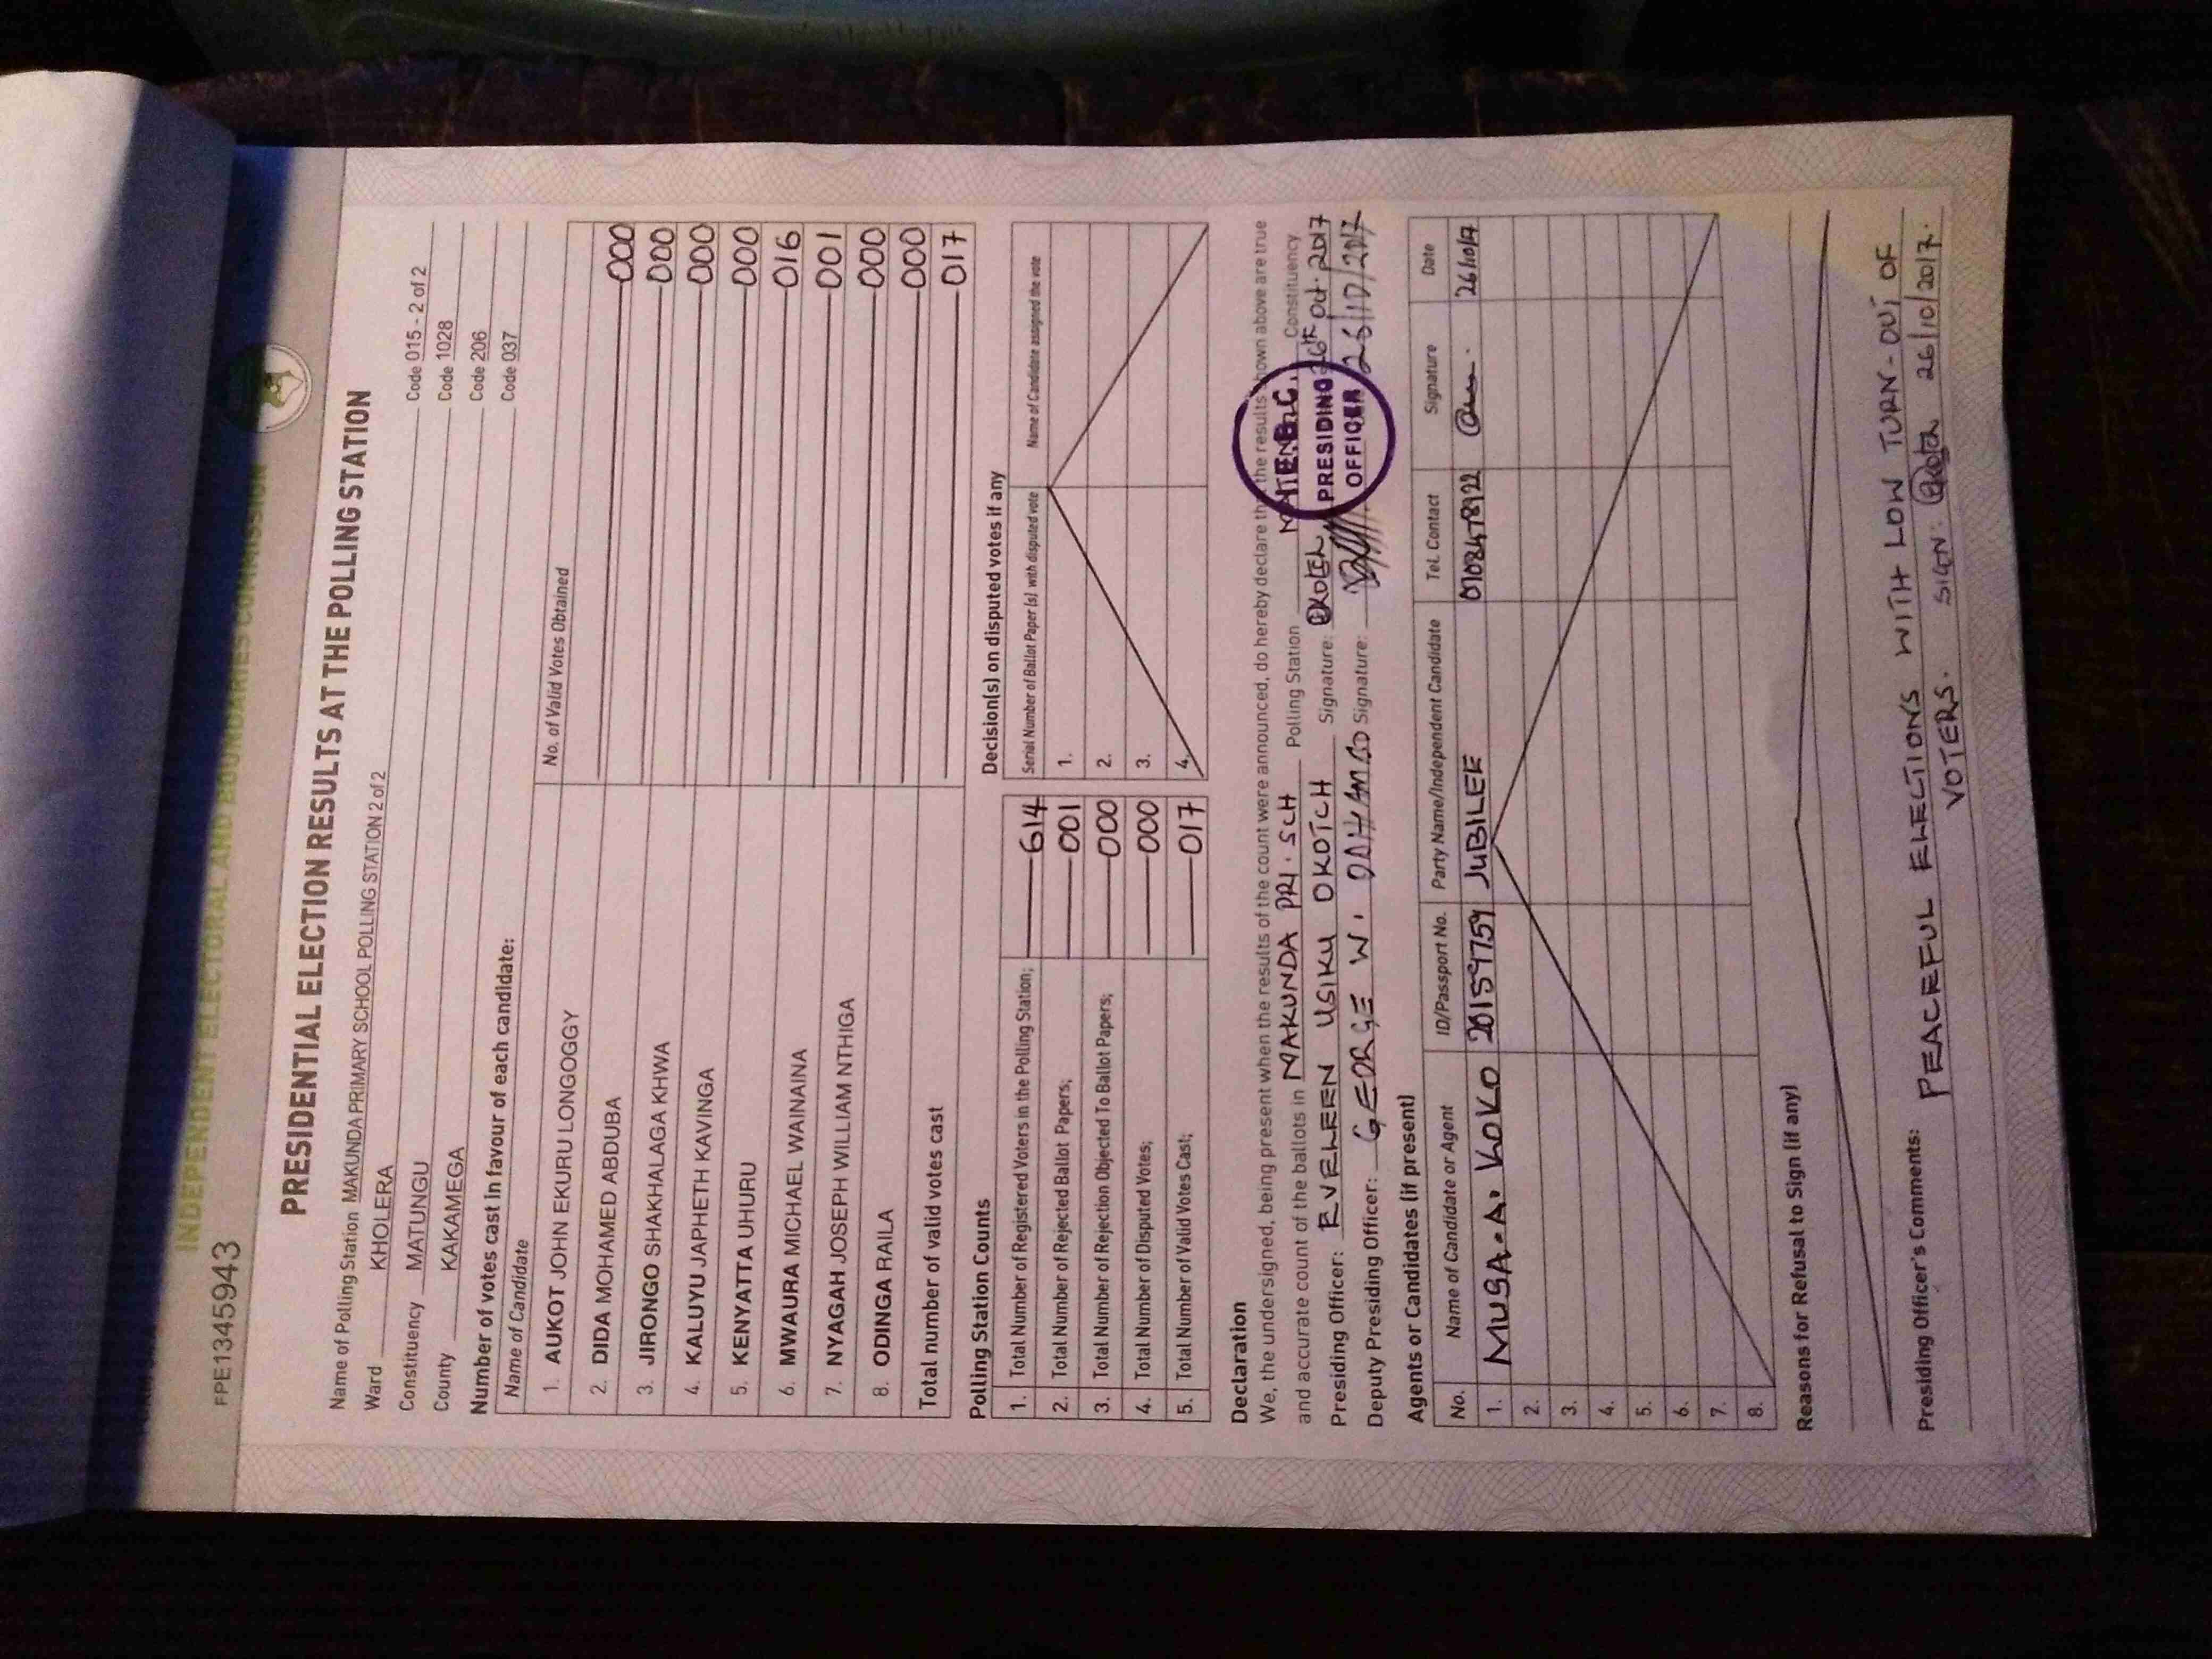 INDEPENDENT ELECTORAL AND BOUNDARIES COMMISSION
FPE1345943
PRESIDENTIAL ELECTION RESULTS AT THE POLLING STATION
Name of Polling Station MAKUNDA PRIMARY SCHOOL POLLING STATION 2 of 2 Code 015 - 2 of 2
Ward KHOLERA Code 1028
Constituency MATUNGU Code 206
County KAKAMEGA Code 037
Number of votes cast in favour of each candidate:
Name of Candidate No. of Valid Votes Obtained
1. AUKOT JOHN EKURU LONGOGGY 000
2. DIDA MOHAMED ABDUBA 000
3. JIRONGO SHAKHALAGA KHWA 000
4. KALUYU JAPHETH KAVINGA 000
5. KENYATTA UHURU 016
6. MWAURA MICHAEL WAINAINA 001
7. NYAGAH JOSEPH WILLIAM NTHIGA 000
8. ODINGA RAILA 000
Total number of valid votes cast 017
Polling Station Counts
1. Total Number of Registered Voters in the Polling Station; 614
2. Total Number of Rejected Ballot Papers; 001
3. Total Number of Rejection Objected To Ballot Papers; 000
4. Total Number of Disputed Votes; 000
5. Total Number of Valid Votes Cast; 017
Decision(s) on disputed votes if any
Serial Number of Ballot Paper (s) with disputed vote Name of Candidate assigned the vote
1.
2.
3.
4.
Declaration
We, the undersigned, being present when the results of the count were announced, do hereby declare that the results shown above are true
and accurate count of the ballots in MAKUNDA PRI. SCH Polling Station Constituency
Presiding Officer: EVELEEN USIKU OKOTCH Signature: 26th Oct. 2017
Deputy Presiding Officer: GEORGE W. Signature: 26/10/2017
PRESIDING
OFFICER
Agents or Candidates (if present)
No. Name of Candidate or Agent ID/Passport No. Party Name/Independent Candidate Tel. Contact Signature Date
1. MUSA.A. KOKO 20159759 JUBILEE 0708478922 26/10/17
2.
3.
4.
5.
6.
7.
8.
Reasons for Refusal to Sign (if any)
Presiding Officer's Comments: PEACEFUL ELECTIONS WITH LOW TURN-OUT OF
VOTERS. SIGN: 26/10/2017.